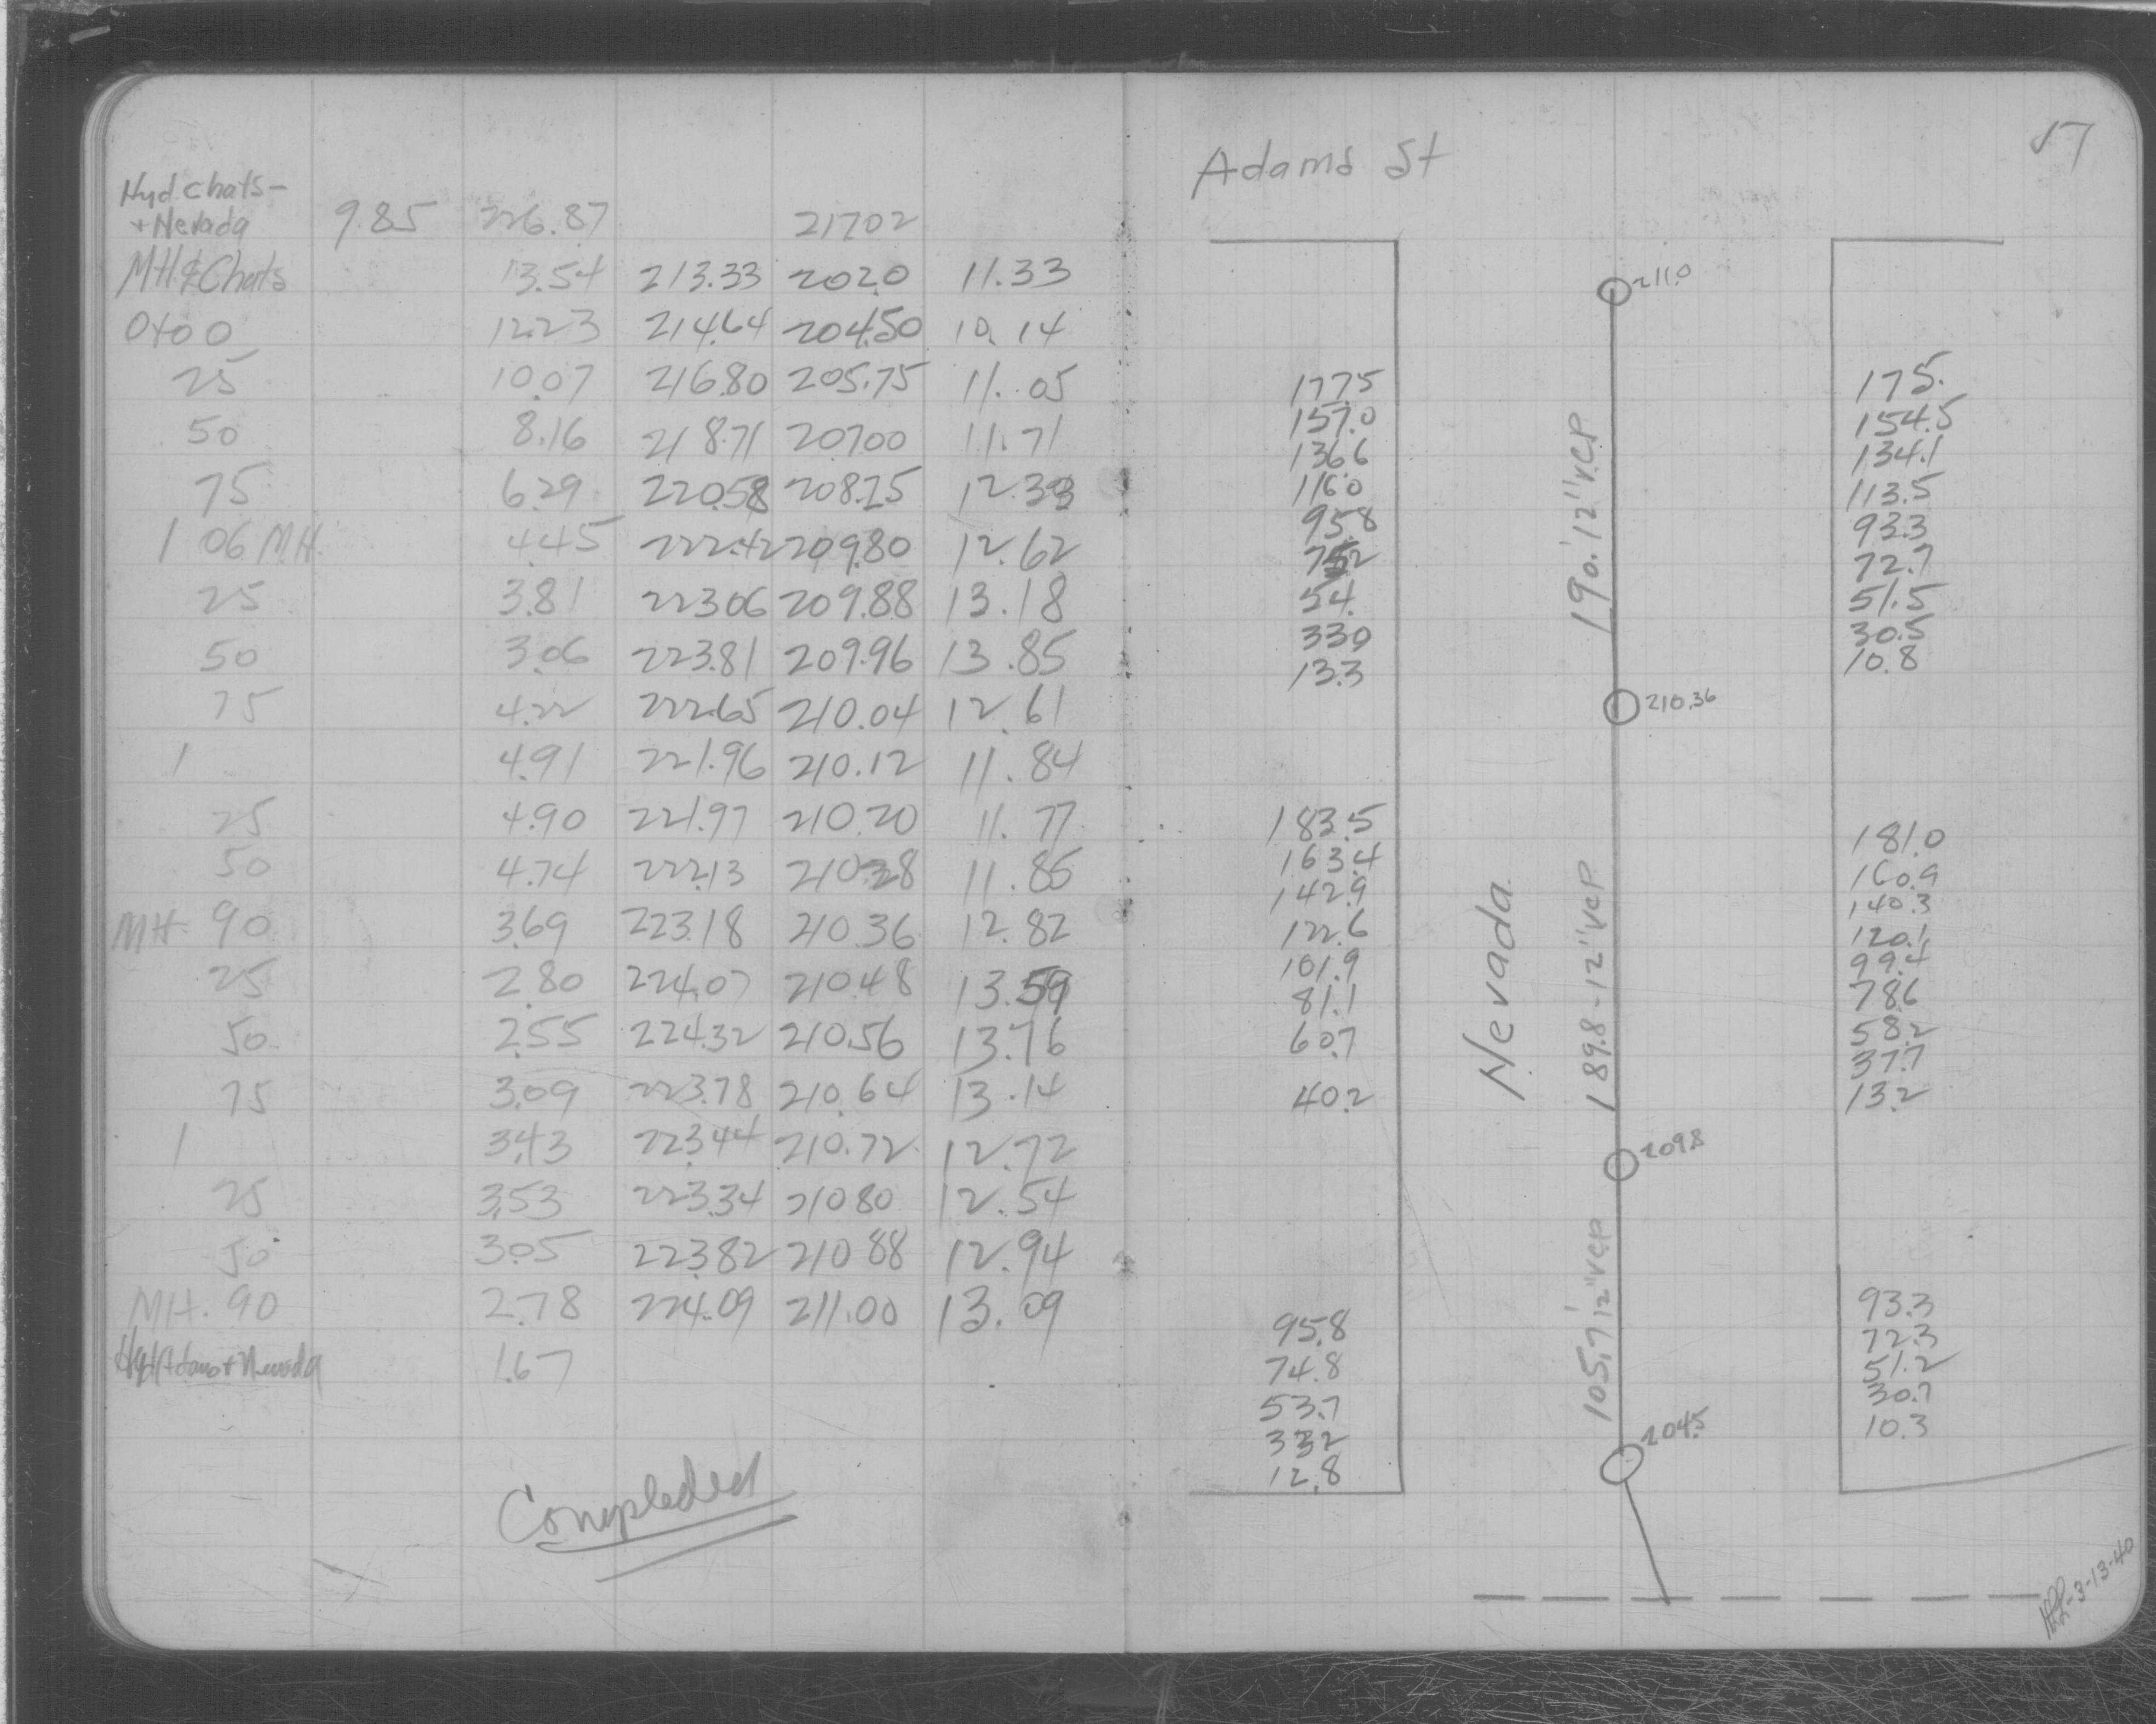 Hyd chats-
+ Nevada 9.85 226.87 217.02
MH & Chats 13.54 213.33 202.0 11.33
0+00 12.23 214.64 204.50 10.14
25 10.07 216.80 205.75 11.05
50 8.16 218.71 207.00 11.71
75 6.29 220.58 208.25 12.33
1 06 MH. 4.45 222.42 209.80 12.62
25 3.81 223.06 209.88 13.18
50 3.06 223.81 209.96 13.85
75 4.22 222.65 210.04 12.61
1 4.91 221.96 210.12 11.84
25 4.90 221.97 210.20 11.77
50 4.74 222.13 210.28 11.85
MH. 90 3.69 223.18 210.36 12.82
25 2.80 224.07 210.48 13.59
50 2.55 224.32 210.56 13.76
75 3.09 223.78 210.64 13.14
1 3.43 223.44 210.72 12.72
25 3.53 223.34 210.80 12.54
50 3.05 223.82 210.88 12.94
MH. 90 2.78 224.09 211.00 13.09
Hyd Adams + Nevada 1.67
Completed
17
Adams St
211.0
177.5
157.0
136.6
116.0
95.8
75.2
54.
33.0
13.3
190.' 12" VCP
175.
154.5
134.1
113.5
93.3
72.7
51.5
30.5
10.8
210.36
183.5
163.4
142.9
122.6
101.9
81.1
60.7
40.2
Nevada
189.8 - 12" VCP
181.0
160.9
140.3
120.1
99.4
78.6
58.2
37.7
13.2
209.8
95.8
74.8
53.7
33.2
12.8
105.7' 12" VCP
93.3
72.3
51.2
30.7
10.3
204.5
3-13-40